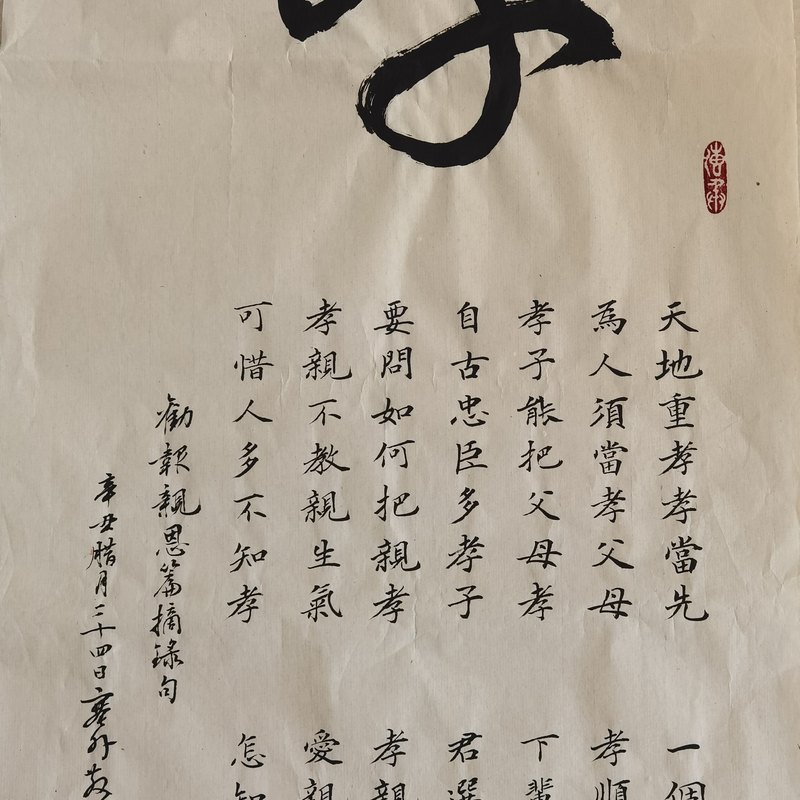 天地重孝孝當先
一個
為人須當孝父母
孝順
孝子能把父母孝
下輩
自古忠臣多孝子
君選
要問如何把親孝
孝親
孝親不教親生氣
愛親
可惜人多不知孝
怎知
勸報親恩篇摘錄句
辛丑腊月二十四日塞外